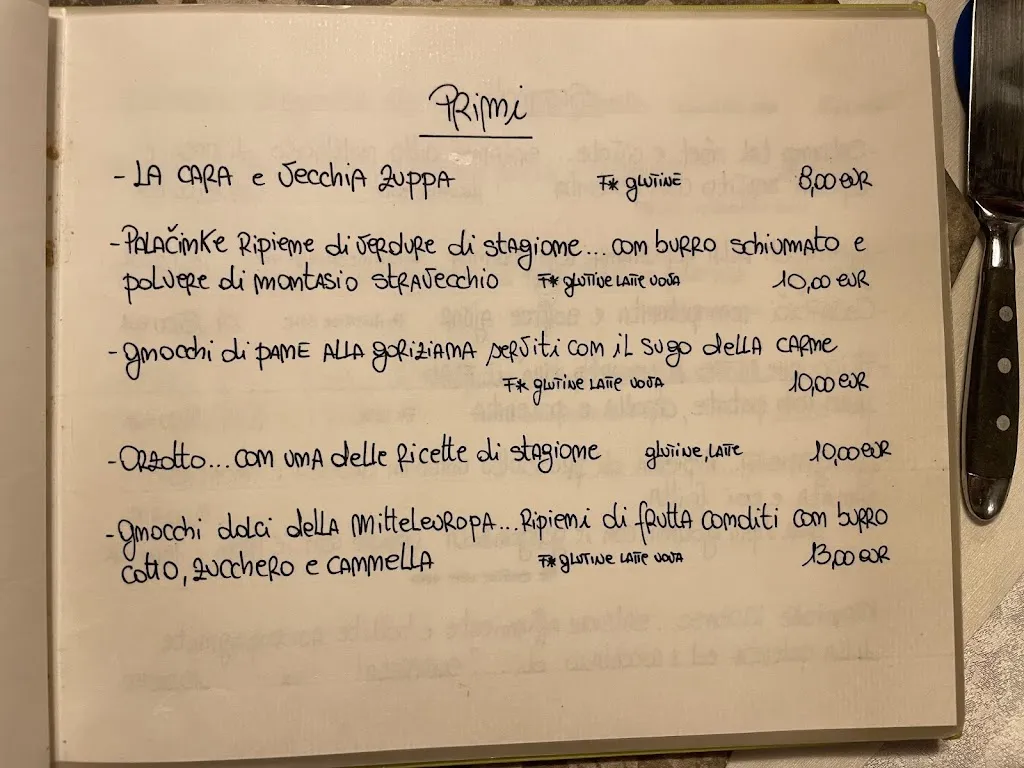 PRIMI
- LA CARA e VeccHiA ZUPPA F* glutine 8,00 EUR
- PALAČINKE Ripiene di VERDURE di stagione... con burro schiumato e
polvere di montasio stravecchio F* glutine latte uova 10,00 EUR
- gnocchi di PANE ALLA goriziana serviti con il sugo della carne
F* glutine latte uova 10,00 EUR
- Orzotto... con una delle ricette di stagione glutine, latte 10,00 EUR
- gnocchi dolci della Mitteleuropa... Ripieni di frutta conditi con burro
cotto, zucchero e cannella F* glutine latte uova 13,00 EUR